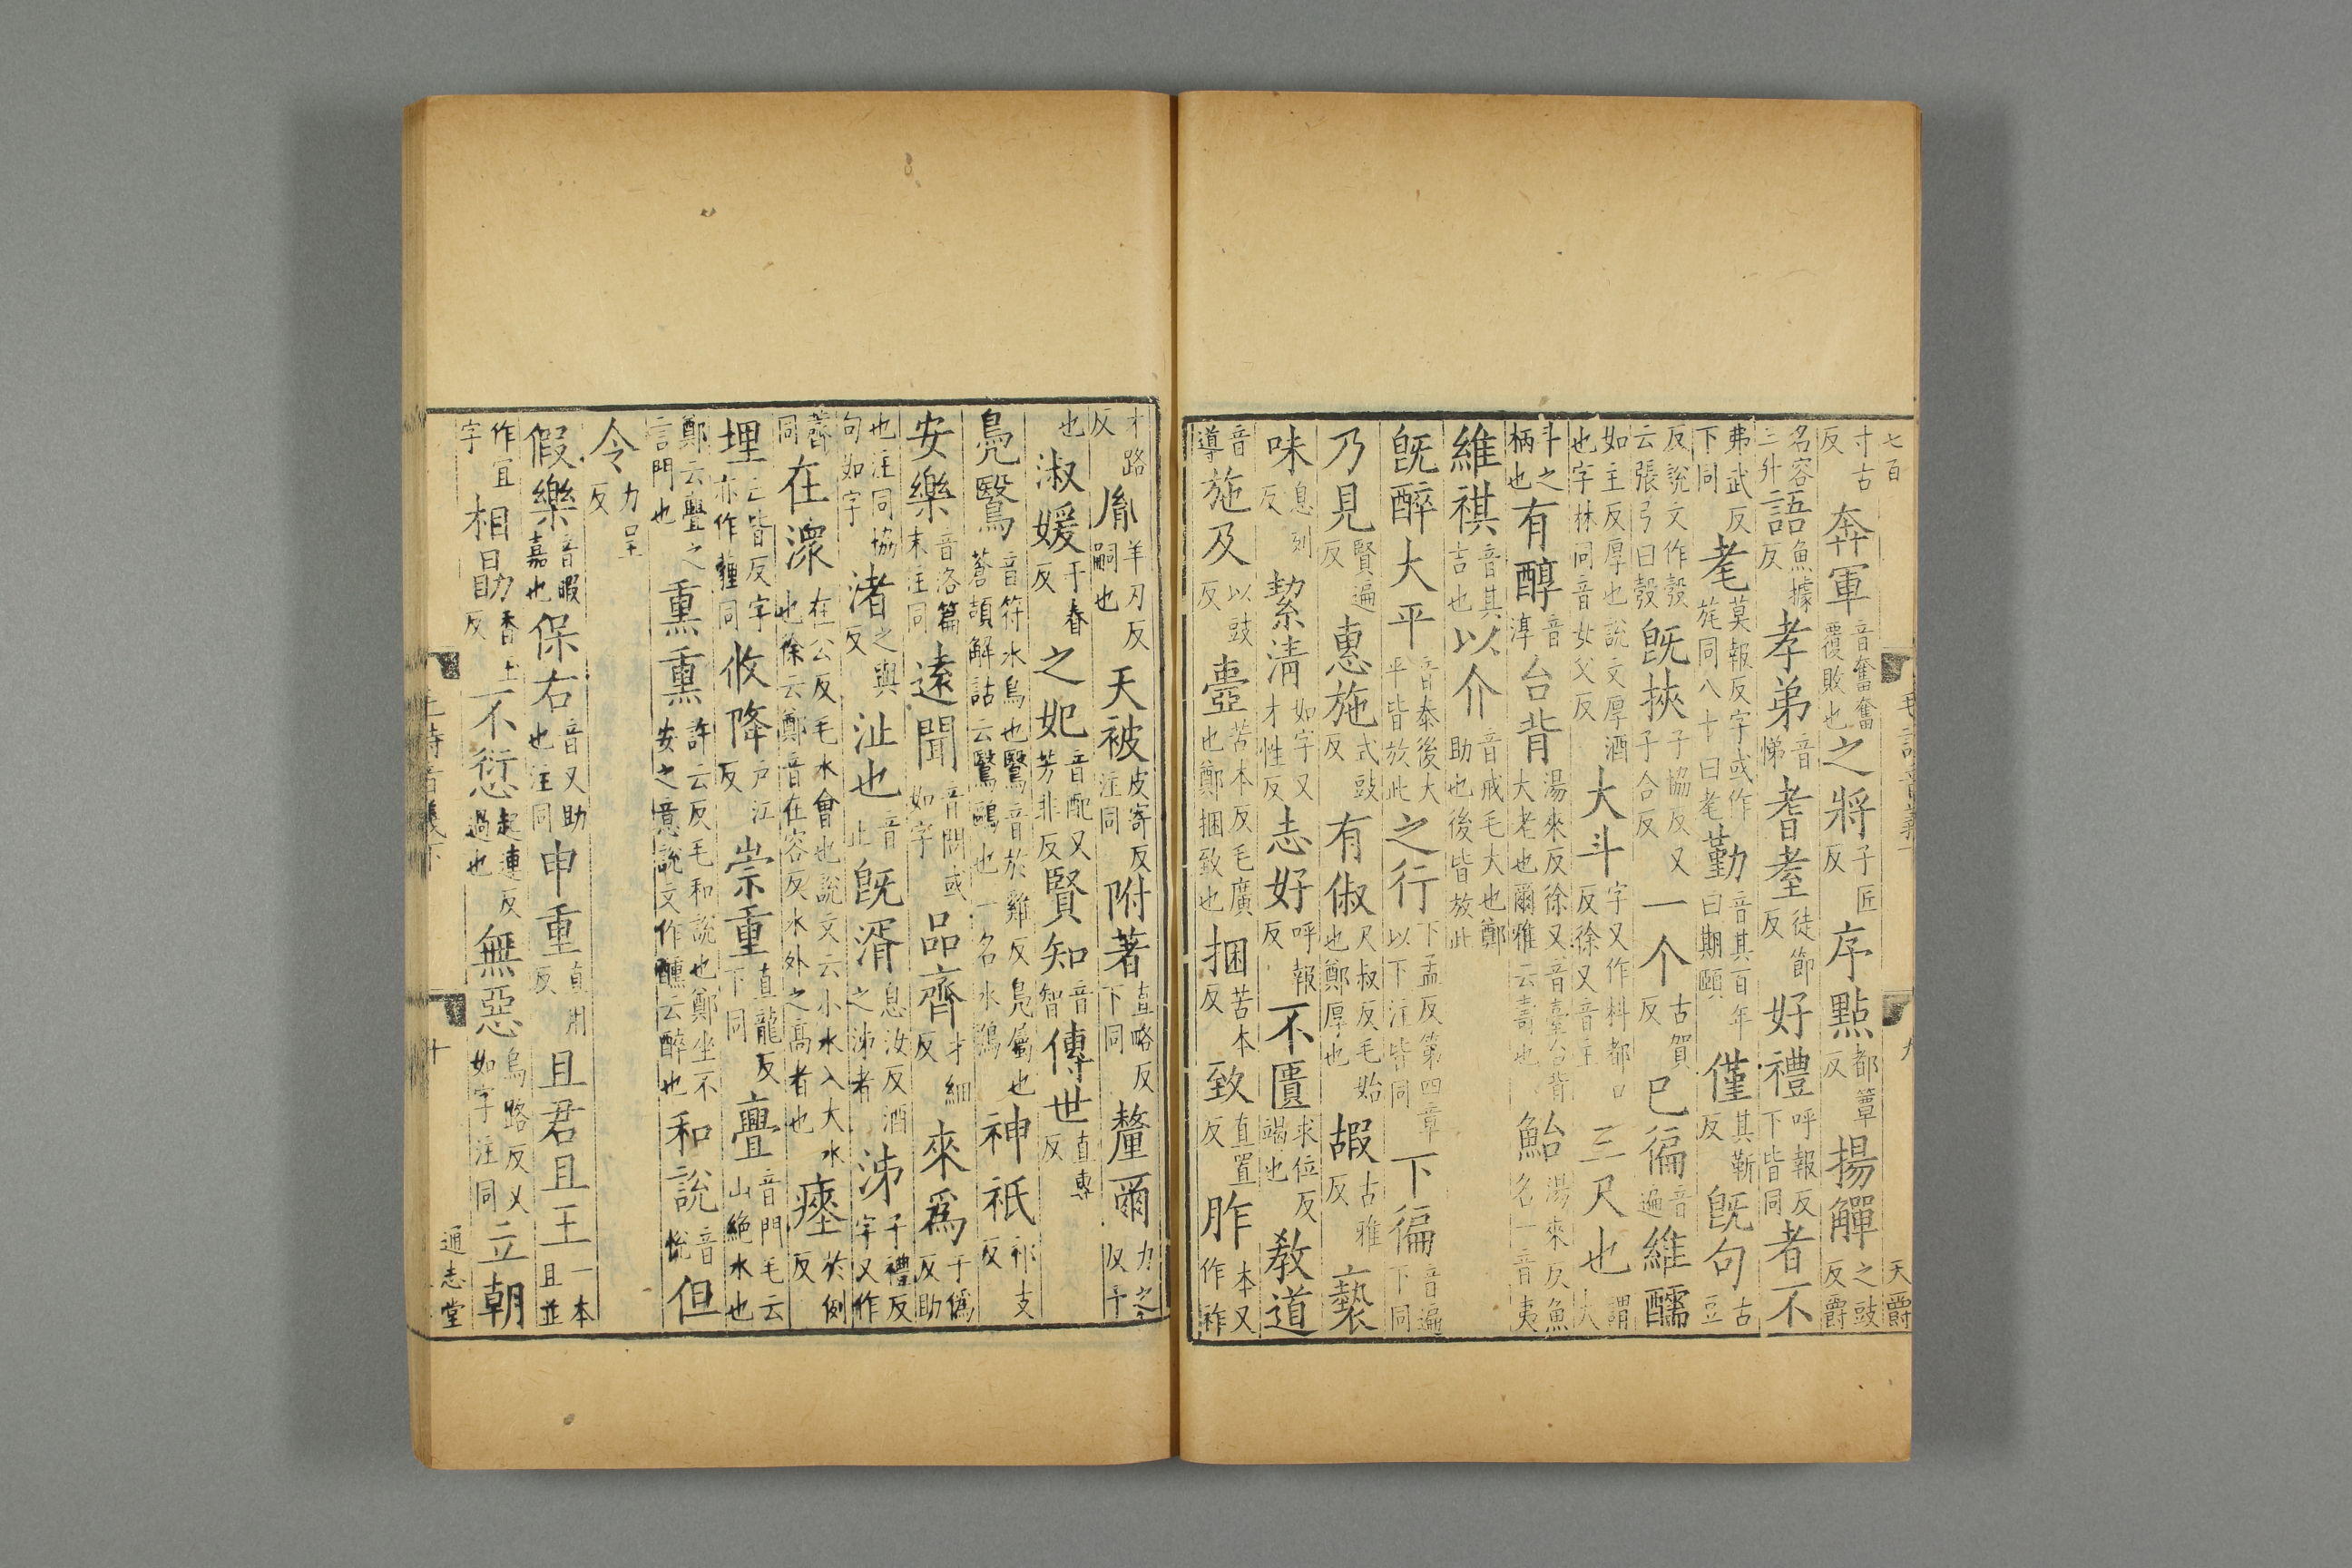 七百 天爵
寸古反奔軍音奮奮覆敗也之將子匠反序點都簟反揚觶之豉反爵
名容三升語魚據反孝弟音悌耆耋徒節反好禮呼報反下皆同者不
弗武反下同耄莫報反字或作旄同八十曰耄勤音其百年曰期頤僅其靳反旣句古豆
反說文作彀云張弓曰彀旣挾子協反又子合反一个古賀反已徧音遍維醹
如主反厚也說文厚酒也字林同音女父反大斗字又作枓都口反徐又音主三尺也謂大
斗之柄也有醇音淳台背湯來反徐又音臺台背大老也爾雅云壽也鮐湯來反魚名一音夷
維祺音其吉也以介音戒毛大也鄭助也後皆放此
旣醉大平音泰後大平皆放此之行下孟反第四章以下注皆同下徧音遍下同
乃見賢遍反惠施式豉反有俶尺叔反毛始也鄭厚也嘏古雅反褻
味息列反絜淸如字又才性反志好呼報反不匱求位反竭也敎道
音導施及以豉反壼苦本反毛廣也鄭捆致也捆苦本反致直置反胙本又作祚
才路反胤羊刃反嗣也天被皮寄反注同附著直略反下同釐爾力之反予
也淑媛于眷反之妃音配又芳非反賢知音智傳世直專反
鳧鷖音符水鳥也鷖音於雞反鳧屬也蒼頡解詁云鷖鷗也一名水鴞神祇祁支反
安樂音洛篇末注同遠聞音問或如字品齊才細反來爲于僞反助
也注同協句如字渚之與反沚也音止旣湑息汝反酒之泲者泲子禮反字又作
䕩同在潨在公反毛水會也說文云小水入大水也徐云鄭音在容反水外之高者也瘞於例反
埋亡皆反字亦作薶同攸降戶江反崇重直龍反下同亹音門毛云山絕水也
鄭云亹之言門也熏熏許云反毛和說也鄭坐不安之意說文作醺云醉也和說音悅但
令力呈反
假樂音暇嘉也保右音又助也注同申重直用反且君且王一本且並
作宜字相勖香玉反不愆起連反過也無惡烏路反又如字注同立朝
十
通志堂